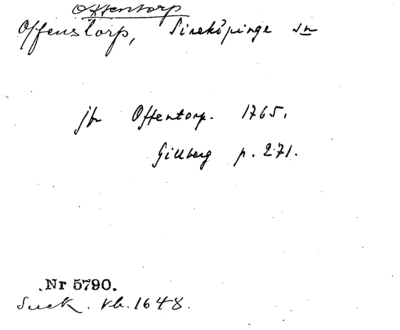 Offentorp
Offenstorp, Sireköpinge sn
jfr Offentorp. 1765.
Gillberg p. 271.
Nr 5790.
Suck. kb. 1648.